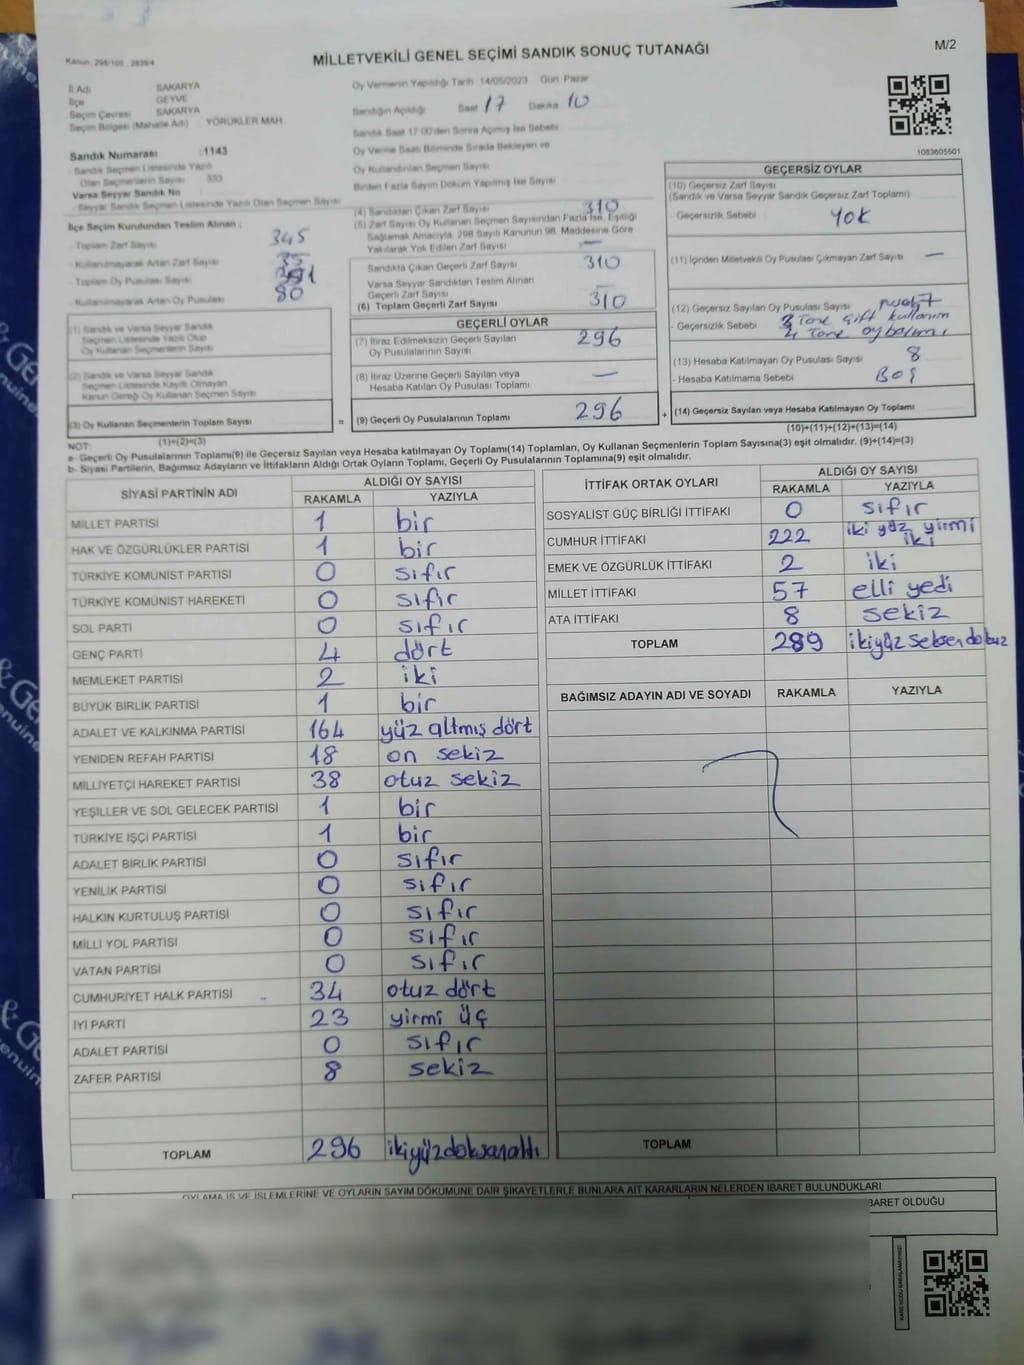 Kanun, 298/105, 2839/4
MİLLETVEKİLİ GENEL SEÇİMİ SANDIK SONUÇ TUTANAĞI
M/2
İl Adı SAKARYA
İlçe GEYVE
Seçim Çevresi SAKARYA
Seçim Bölgesi (Mahalle Adı) YÖRÜKLER MAH
Sandık Numarası :1143
- Sandık Seçmen Listesinde Yazılı
Olan Seçmenlerin Sayısı : 333
Varsa Seyyar Sandık No
- Seyyar Sandık Seçmen Listesinde Yazılı Olan Seçmen Sayısı
Oy Vermenin Yapıldığı Tarih 14/05/2023 Gün Pazar
Sandığın Açıldığı Saat 17 Dakika 10
Sandık Saat 17:00'den Sonra Açılmış İse Sebebi
Oy Verme Saati Bitiminde Sırada Bekleyen ve
Oy Kullandırılan Seçmen Sayısı
Birden Fazla Sayım Döküm Yapılmış İse Sayısı
1083605501
İlçe Seçim Kurulundan Teslim Alınan :
- Toplam Zarf Sayısı 345
- Kullanılmayarak Artan Zarf Sayısı 35
- Toplam Oy Pusulası Sayısı
- Kullanılmayarak Artan Oy Pusulası 80
(1) Sandık ve Varsa Seyyar Sandık
Seçmen Listesinde Yazılı Olup
Oy Kullanan Seçmenlerin Sayısı
(2) Sandık ve Varsa Seyyar Sandık
Seçmen Listesinde Kayıtlı Olmayan
Kanun Gereği Oy Kullanan Seçmen Sayısı
(3) Oy Kullanan Seçmenlerin Toplam Sayısı
(1)+(2)=(3)
(4) Sandıktan Çıkan Zarf Sayısı 310
(5) Zarf Sayısı Oy Kullanan Seçmen Sayısından Fazla İse, Eşitliği
Sağlamak Amacıyla, 298 Sayılı Kanunun 98. Maddesine Göre
Yakılarak Yok Edilen Zarf Sayısı —
Sandıkta Çıkan Geçerli Zarf Sayısı 310
Varsa Seyyar Sandıktan Teslim Alınan
Geçerli Zarf Sayısı —
(6) Toplam Geçerli Zarf Sayısı 310
GEÇERLİ OYLAR
(7) İtiraz Edilmeksizin Geçerli Sayılan
Oy Pusulalarının Sayısı 296
(8) İtiraz Üzerine Geçerli Sayılan veya
Hesaba Katılan Oy Pusulası Toplamı —
= (9) Geçerli Oy Pusulalarının Toplamı 296 +
GEÇERSİZ OYLAR
(10) Geçersiz Zarf Sayısı
(Sandık ve Varsa Seyyar Sandık Geçersiz Zarf Toplamı)
- Geçersizlik Sebebi YOK
(11) İçinden Milletvekili Oy Pusulası Çıkmayan Zarf Sayısı —
(12) Geçersiz Sayılan Oy Pusulası Sayısı
- Geçersizlik Sebebi Tane çift kullanım
Tane oy
(13) Hesaba Katılmayan Oy Pusulası Sayısı 8
- Hesaba Katılmama Sebebi Boş
(14) Geçersiz Sayılan veya Hesaba Katılmayan Oy Toplamı
(10)+(11)+(12)+(13)=(14)
NOT:
a- Geçerli Oy Pusulalarının Toplamı(9) ile Geçersiz Sayılan veya Hesaba katılmayan Oy Toplamı(14) Toplamları, Oy Kullanan Seçmenlerin Toplam Sayısına(3) eşit olmalıdır. (9)+(14)=(3)
b- Siyasi Partilerin, Bağımsız Adayların ve İttifakların Aldığı Ortak Oyların Toplamı, Geçerli Oy Pusulalarının Toplamına(9) eşit olmalıdır.
SİYASİ PARTİNİN ADI ALDIĞI OY SAYISI
RAKAMLA YAZIYLA
MİLLET PARTİSİ 1 bir
HAK VE ÖZGÜRLÜKLER PARTİSİ 1 bir
TÜRKİYE KOMÜNİST PARTİSİ 0 sıfır
TÜRKİYE KOMÜNİST HAREKETİ 0 sıfır
SOL PARTİ 0 sıfır
GENÇ PARTİ 4 dört
MEMLEKET PARTİSİ 2 iki
BÜYÜK BİRLİK PARTİSİ 1 bir
ADALET VE KALKINMA PARTİSİ 164 yüz altmış dört
YENİDEN REFAH PARTİSİ 18 on sekiz
MİLLİYETÇİ HAREKET PARTİSİ 38 otuz sekiz
YEŞİLLER VE SOL GELECEK PARTİSİ 1 bir
TÜRKİYE İŞÇİ PARTİSİ 1 bir
ADALET BİRLİK PARTİSİ 0 sıfır
YENİLİK PARTİSİ 0 sıfır
HALKIN KURTULUŞ PARTİSİ 0 sıfır
MİLLİ YOL PARTİSİ 0 sıfır
VATAN PARTİSİ 0 sıfır
CUMHURİYET HALK PARTİSİ 34 otuz dört
İYİ PARTİ 23 yirmi üç
ADALET PARTİSİ 0 sıfır
ZAFER PARTİSİ 8 sekiz
TOPLAM 296 ikiyüzdoksanaltı
İTTİFAK ORTAK OYLARI ALDIĞI OY SAYISI
RAKAMLA YAZIYLA
SOSYALİST GÜÇ BİRLİĞİ İTTİFAKI 0 sıfır
CUMHUR İTTİFAKI 222 iki yüz yirmi iki
EMEK VE ÖZGÜRLÜK İTTİFAKI 2 iki
MİLLET İTTİFAKI 57 elli yedi
ATA İTTİFAKI 8 sekiz
TOPLAM 289 ikiyüz seksendokuz
BAĞIMSIZ ADAYIN ADI VE SOYADI RAKAMLA YAZIYLA
TOPLAM
OYLAMA İŞ VE İŞLEMLERİNE VE OYLARIN SAYIM DÖKÜMÜNE DAİR ŞİKAYETLERLE BUNLARA AİT KARARLARIN NELERDEN İBARET BULUNDUKLARI
İBARET OLDUĞU